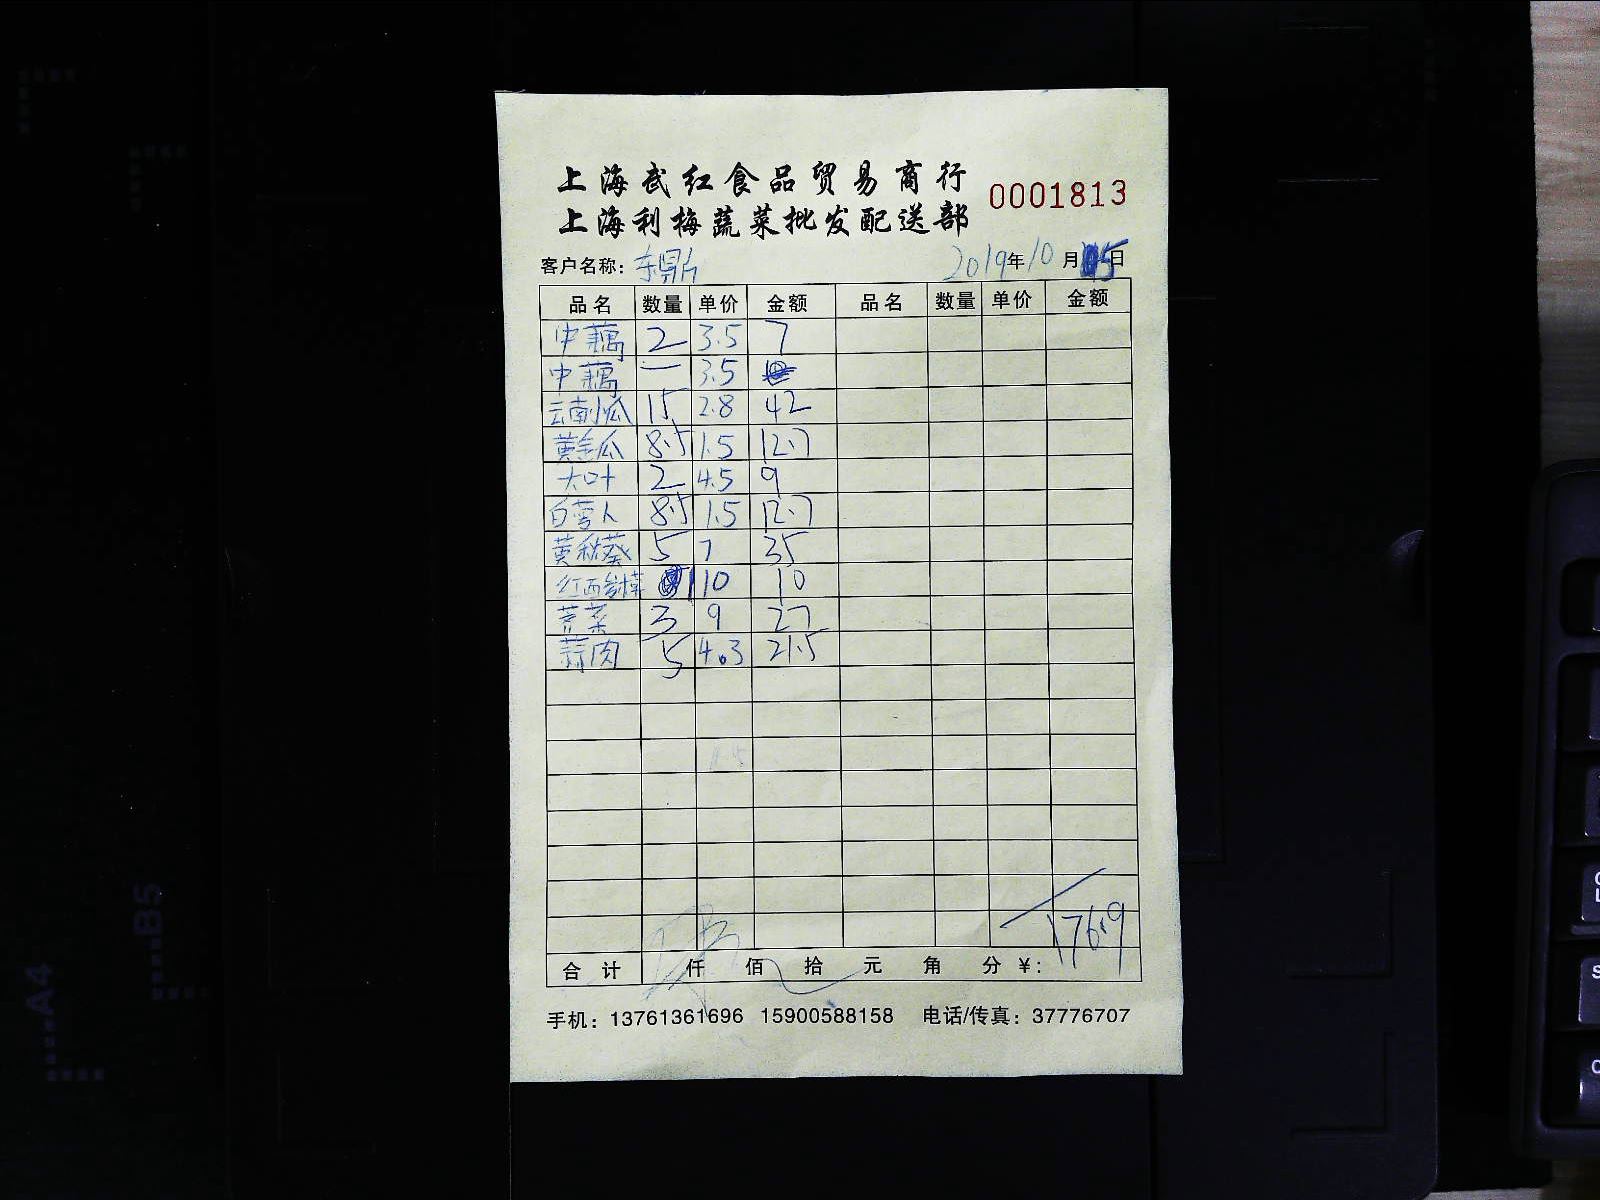 上海武红食品贸易商行
0001813
上海利梅蔬菜批发配送部
客户名称：东鼎 2019年10月15日
品名 数量 单价 金额 品名 数量 单价 金额
中藕 2 3.5 7
中藕 一 3.5
云南小瓜 15 2.8 42
黄金瓜 8.5 1.5 12.7
大叶 2 4.5 9
白萝卜 8.5 1.5 12.7
黄秋葵 5 7 35
红西 1 10 10
菜 3 9 27
蒜肉 5 4.3 21.5
176.9
合计 仟 佰 拾 元 角 分 ¥：
手机：13761361696 15900588158 电话/传真：37776707
A4
B5